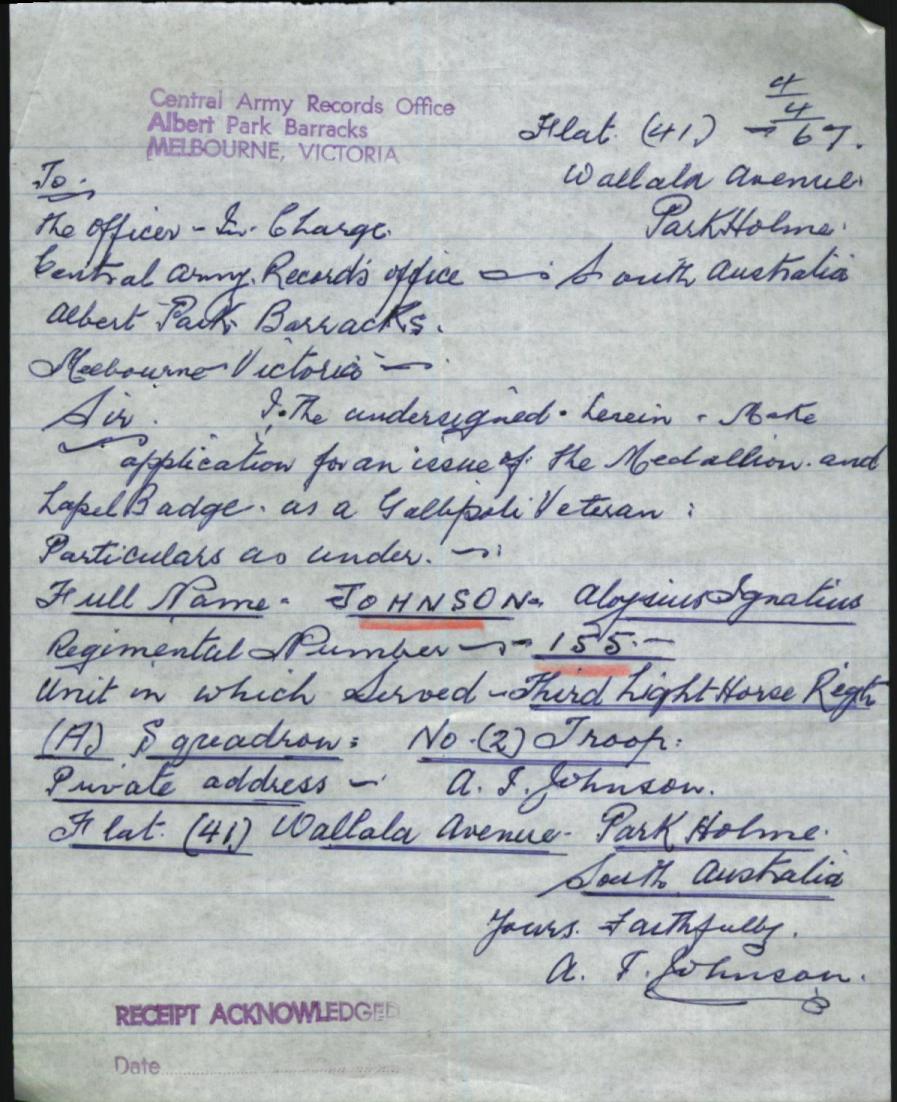 Central Army Records Office
Albert Park Barracks
MELBOURNE, VICTORIA
4/4/67.
Flat. (41)
Wallala Avenue.
Park Holme.
South Australia
To.
The Officer-In-Charge.
Central Army. Records office
Albert Park Barracks.
Melbourne Victoria
Sir. I. the undersigned. herein. Make
application for an issue of the Medallion and
Lapel Badge. as a Gallipoli Veteran:
Particulars as under.
Full Name - JOHNSON. Aloysius Ignatius
Regimental Number - 155.
Unit in which Served - Third Light Horse Regt
(A) Squadron: No. (2) Troop:
Private address - A. I. Johnson.
Flat. (41) Wallala Avenue. Park Holme.
South Australia
Yours. Faithfully.
A. I. Johnson.
RECEIPT ACKNOWLEDGED
Date